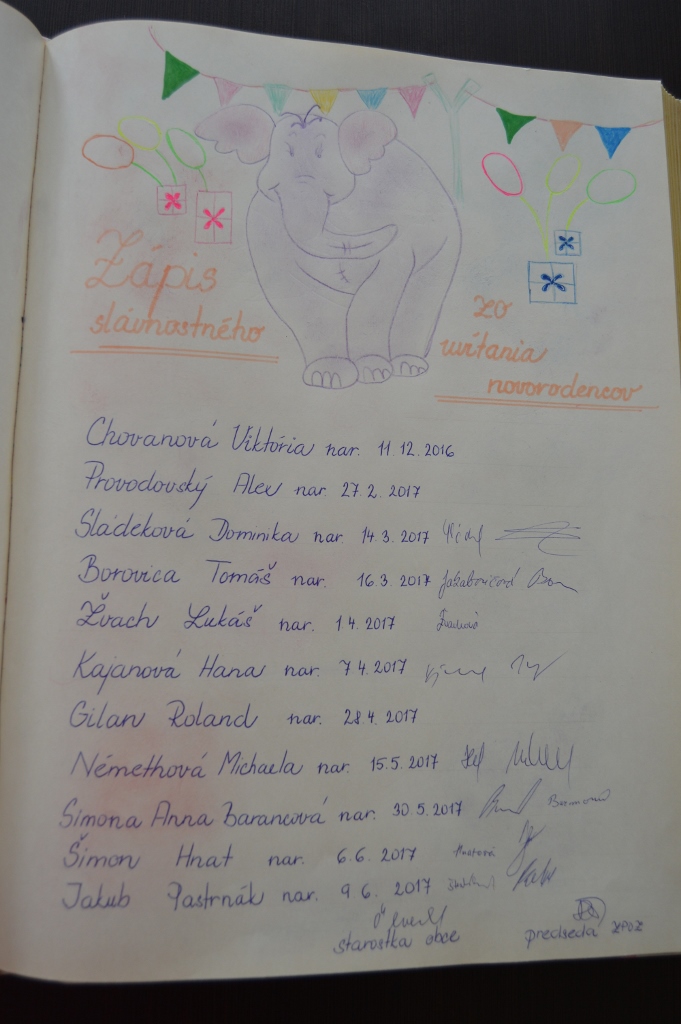 Zápis
slávnostného
zo
uvítania
novorodencov
Chovanová Viktória nar. 11.12.2016
Provodovský Alex nar. 27.2.2017
Sládeková Dominika nar. 14.3.2017
Borovica Tomáš nar. 16.3.2017 Jakabovičová
Žvach Lukáš nar. 1.4.2017
Kajanová Hana nar. 7.4.2017
Gilan Roland nar. 28.4.2017
Némethová Michaela nar. 15.5.2017
Simona Anna Barancová nar. 30.5.2017
Šimon Hnat nar. 6.6.2017 Hnatová
Jakub Pastrnák nar. 9.6.2017
starostka obce
predseda ZPOZ